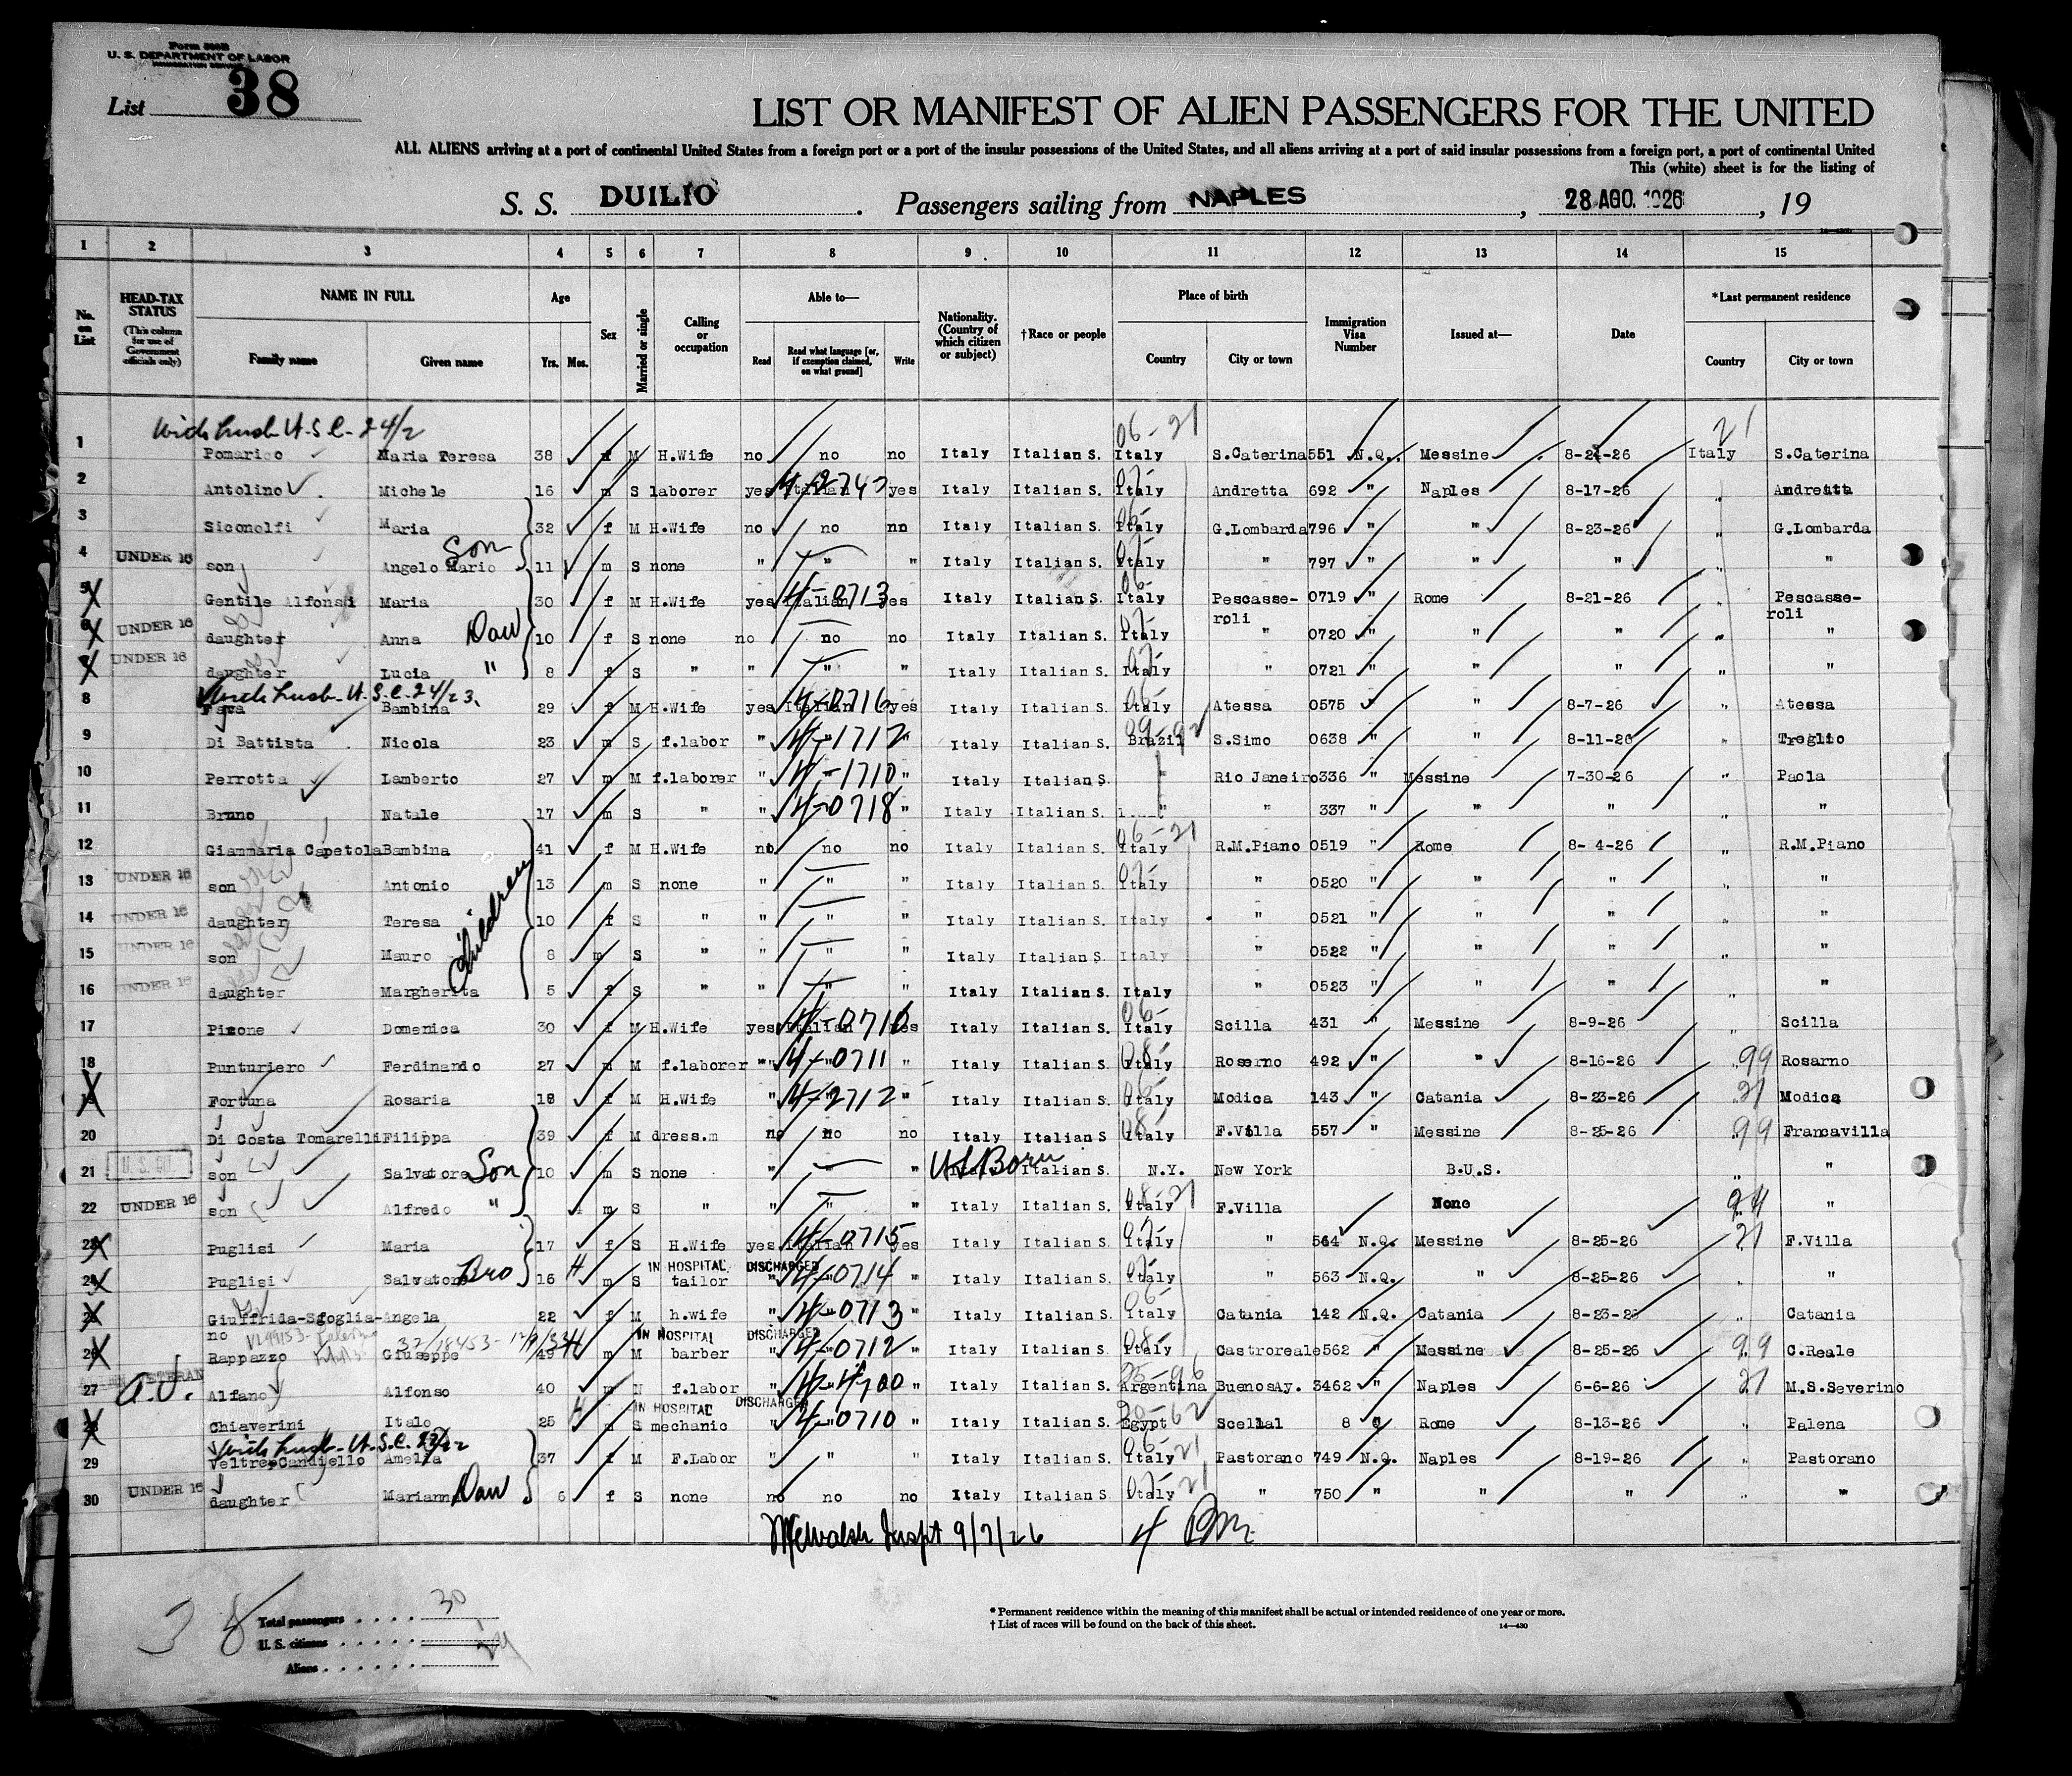 Form 500B
U. S. DEPARTMENT OF LABOR
IMMIGRATION SERVICE
List 38
LIST OR MANIFEST OF ALIEN PASSENGERS FOR THE UNITED
ALL ALIENS arriving at a port of continental United States from a foreign port or a port of the insular possessions of the United States, and all aliens arriving at a port of said insular possessions from a foreign port, a port of continental United
This (white) sheet is for the listing of
S. S. DUILIO. Passengers sailing from NAPLES, 28 AGO. 1926, 19
1 2 3 4 5 6 7 8 9 10 11 12 13 14 15
No. on List
HEAD-TAX STATUS (This column for use of Government officials only)
NAME IN FULL Family name Given name
Age Yrs. Mos.
Sex
Married or single
Calling or occupation
Able to— Read Read what language [or, if exemption claimed, on what ground] Write
Nationality. (Country of which citizen or subject)
†Race or people
Place of birth Country City or town
Immigration Visa Number
Issued at—
Date
*Last permanent residence Country City or town
With husb U.S.C- 24/2 06-21 21
1 Pomarico Maria Teresa 38 f M H.Wife no no no Italy Italian S. Italy S.Caterina 551 N.Q. Messine 8-24-26 Italy S.Caterina
2 Antolino Michele 16 m S laborer yes Italian 4-2743 yes Italy Italian S. Italy Andretta 692 " Naples 8-17-26 " Andretta
3 Siconolfi Maria 32 f M H.Wife no no nn Italy Italian S. Italy G.Lombarda 796 " " 8-23-26 " G.Lombarda
4 UNDER 16 son Angelo Mario Son 11 m S none " " " Italy Italian S. Italy " 797 " " " " "
5 Gentile Alfonsi Maria 30 f M H.Wife yes Italian 4-0713 yes Italy Italian S. Italy Pescasseroli 0719 " Rome 8-21-26 " Pescasseroli
6 UNDER 16 daughter Anna Daw 10 f S none no no no Italy Italian S. Italy " 0720 " " " " "
7 UNDER 16 daughter Lucia " 8 f S " " " " Italy Italian S. Italy " 0721 " " " " "
With husb- U.S.C. 24/23.
8 Fava Bambina 29 f M H.Wife yes Italian 4-0716 yes Italy Italian S. Italy Atessa 0575 " " 8-7-26 " Atessa
9 Di Battista Nicola 23 m S f.labor " 4-1712 " Italy Italian S. Brazil S.Simo 0638 " " 8-11-26 " Treglio
10 Perrotta Lamberto 27 m M f.laborer " 4-1710 " Italy Italian S. " Rio Janeiro 336 " Messine 7-30-26 " Paola
11 Bruno Natale 17 m S " " 4-0718 " Italy Italian S. " " 337 " " " "
12 Giammaria Capetola Bambina 41 f M H.Wife no no no Italy Italian S. Italy 06-21 R.M.Piano 0519 " Rome 8- 4-26 " R.M.Piano
13 UNDER 16 son Antonio 13 m S none " " " Italy Italian S. Italy " 0520 " " " " "
Children
14 UNDER 16 daughter Teresa 10 f S " " " " Italy Italian S. Italy " 0521 " " " "
15 UNDER 16 son Mauro 8 m S " " " " Italy Italian S. Italy " 0522 " " " " "
16 UNDER 16 daughter Margherita 5 f S " " " " Italy Italian S. Italy " 0523 " " " " "
17 Pizone Domenica 30 f M H.Wife yes Italian 4-0716 yes Italy Italian S. Italy Scilla 431 " Messine 8-9-26 " Scilla
18 Punturiero Ferdinando 27 m M f.laborer " 4-0711 " Italy Italian S. Italy Roserno 492 " " 8-16-26 " 99 Rosarno
19 Fortuna Rosaria 18 f M H.Wife " 4-2712 " Italy Italian S. Italy Modica 143 " Catania 8-23-26 " 21 Modica
20 Di Costa Tomarelli Filippa 39 f M dress.m no no no Italy Italian S. Italy F.Villa 557 " Messine 8-25-26 " 99 Francavilla
21 U.S. CIT. son Salvatore Son 10 m S none " " US Born Italian S. N.Y. New York B.U.S. " "
22 UNDER 16 son Alfredo " m S " " " " Italy Italian S. Italy F.Villa None "
23 Puglisi Maria 17 f S H.Wife yes Italian 4-0715 yes Italy Italian S. Italy " 564 N.Q. Messine 8-25-26 21 F.Villa
IN HOSPITAL DISCHARGED
24 Puglisi Salvatore Bro 16 H m S tailor " 4-0714 " Italy Italian S. Italy " 563 N.Q. " 8-25-26 " "
25 Giuffrida-Sfoglia- Angela 22 f M h.wife " 4-0713 " Italy Italian S. Italy Catania 142 N.Q. Catania 8-23-26 " Catania
no IN HOSPITAL DISCHARGED
26 Rappazzo Giuseppe 49 m M barber " 4-0712 " Italy Italian S. Italy Castroreale 562 " Messine 8-25-26 99 C.Reale
27 Alfano Alfonso 40 m f.labor " " Italy Italian S. Argentina BuenosAy. 3462 " Naples 6-6-26 21 M.S.Severino
IN HOSPITAL DISCHARGED
28 Chiaverini Italo 25 H m S mechanic " 4-0710 " Italy Italian S. Egypt 8 Rome 8-13-26 " Palena
With husb- U.S.C.
29 Veltre Candiello Amelia 37 f M F.Labor " " " Italy Italian S. Italy Pastorano 749 N.Q. Naples 8-19-26 " Pastorano
30 UNDER 16 daughter Marianna Daw 6 f S none no no no Italy Italian S. Italy " 750 " " " " "
Inspt 9/7/26
38
Total passengers . . . . 30
U. S. citizens . . . . .
Aliens . . . . . .
* Permanent residence within the meaning of this manifest shall be actual or intended residence of one year or more.
† List of races will be found on the back of this sheet.
14—430